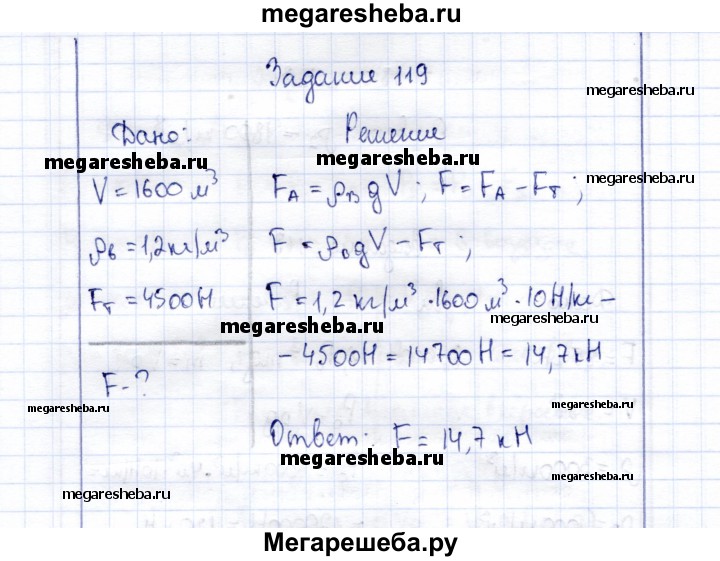 megaresheba.ru
Задание 119
megaresheba.ru
Дано:
Решение
megaresheba.ru
megaresheba.ru
V = 1600 м³
F_A = ρ_в g V ; F = F_A − F_т ;
megaresheba.ru
ρ_в = 1,2 кг/м³
F = ρ_в g V − F_т ;
F_т = 4500 Н
F = 1,2 кг/м³ · 1600 м³ · 10 Н/кг −
megaresheba.ru
megaresheba.ru
− 4500 Н = 14700 Н = 14,7 кН
F - ?
megaresheba.ru
megaresheba.ru
Ответ: F = 14,7 кН
megaresheba.ru
megaresheba.ru
megaresheba.ru
Мегарешеба.ру